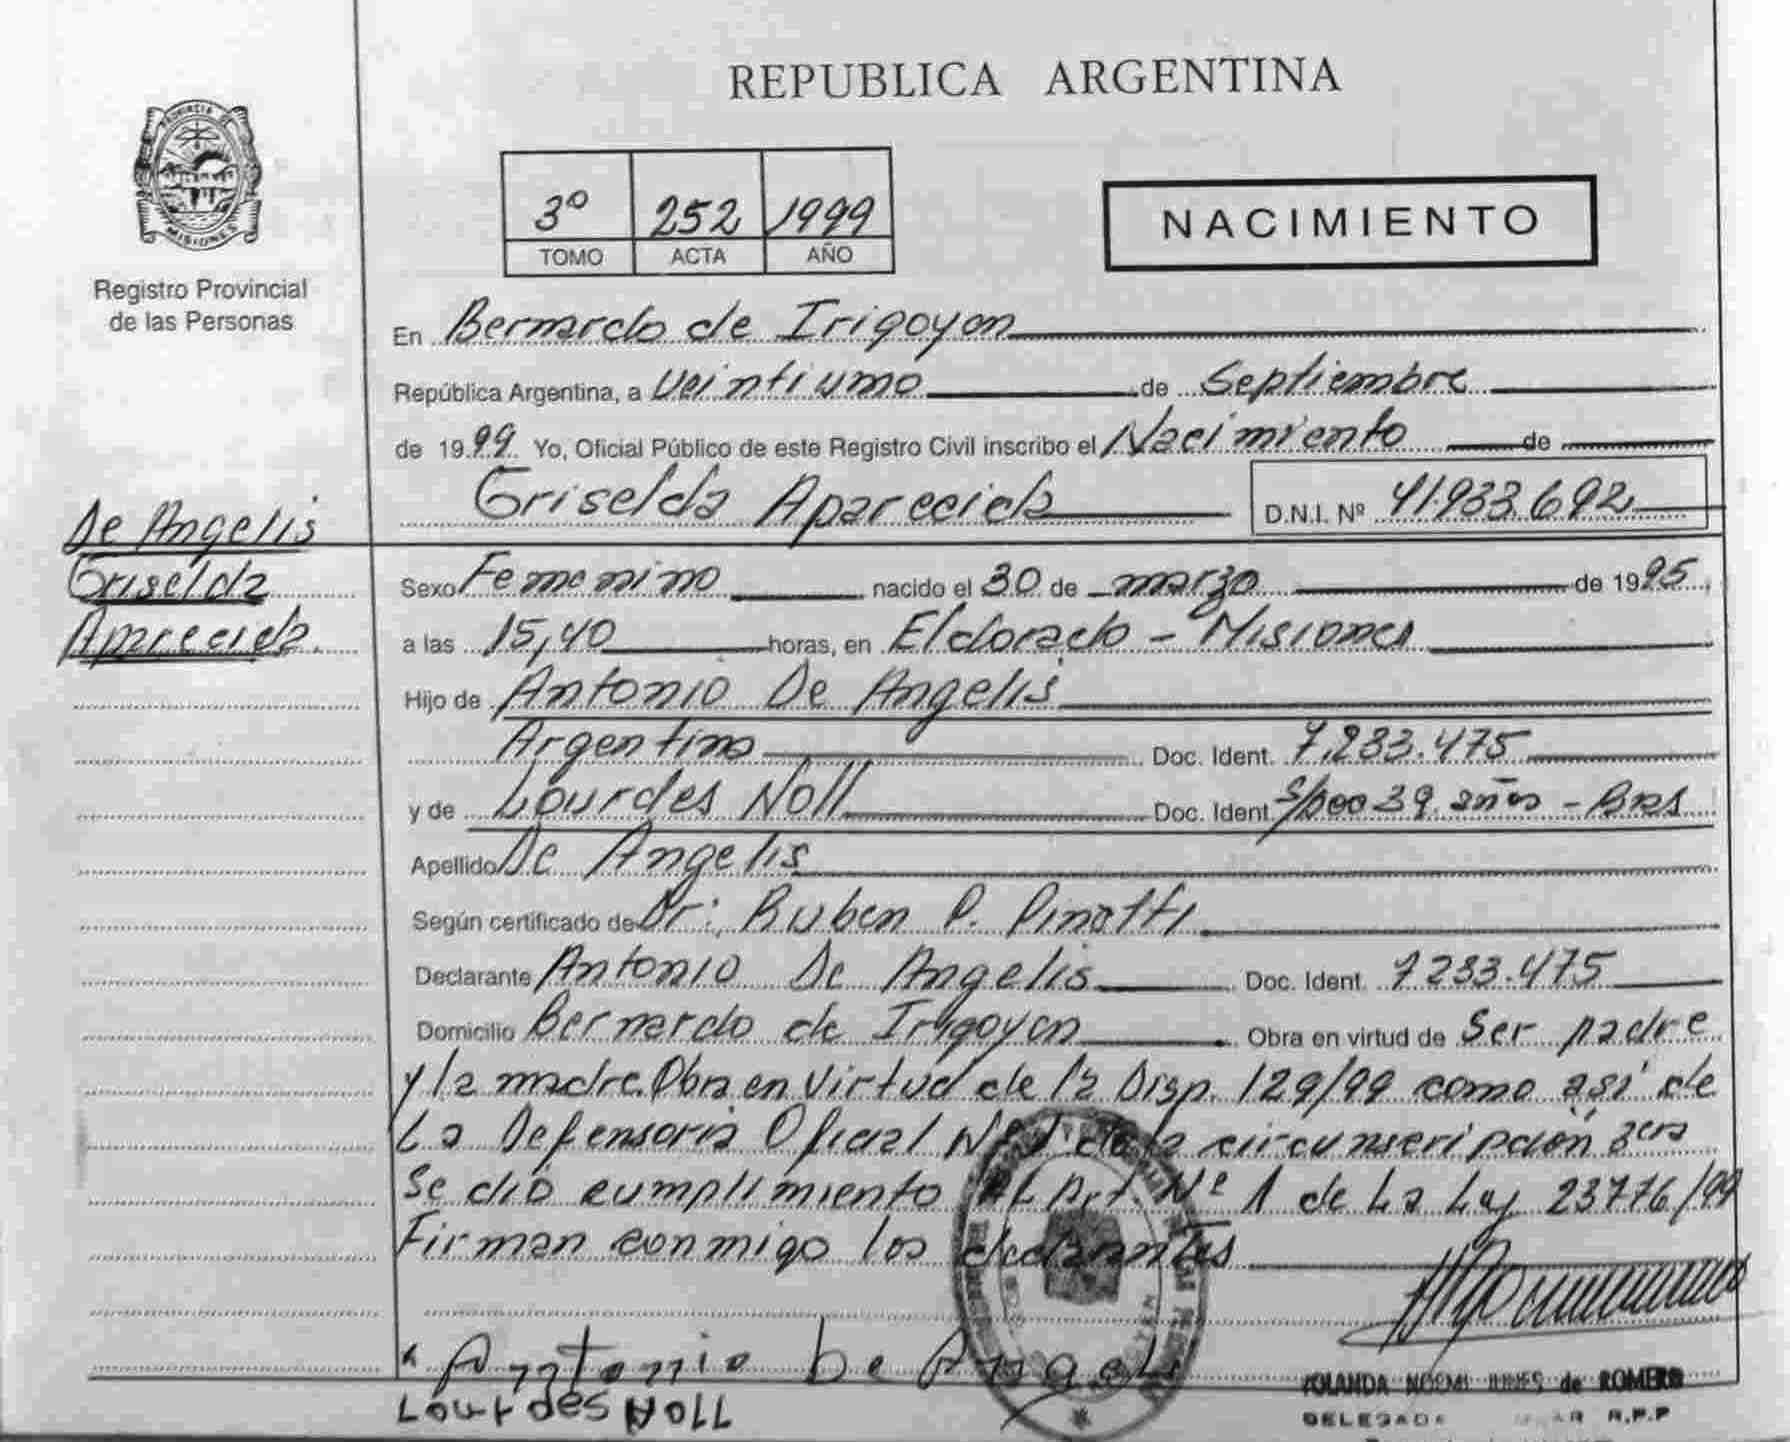 REPUBLICA ARGENTINA
PROVINCIA DE
MISIONES
Registro Provincial
de las Personas
3º 252 1999
TOMO ACTA AÑO
NACIMIENTO
En Bernardo de Irigoyen
República Argentina, a veintiuno de Septiembre
de 1999 Yo, Oficial Público de este Registro Civil inscribo el Nacimiento de
Griselda Aparecida D.N.I. Nº 41.933.692
De Angelis
Griselda
Aparecida.
Sexo Femenino nacido el 30 de marzo de 1995,
a las 15,40 horas, en Eldorado - Misiones
Hijo de Antonio De Angelis
Argentino Doc. Ident. 7.233.475
y de Lourdes Noll Doc. Ident. S/Doc 39 años - Bras
Apellido De Angelis
Según certificado de Dr: Ruben P. Pinotti
Declarante Antonio De Angelis Doc. Ident. 7233.475
Domicilio Bernardo de Irigoyen Obra en virtud de Ser padre
y la madre. Obra en virtud de la Disp. 129/99 como así de
La Defensoria Oficial de la circunscripción 3era
Se dió cumplimiento Al Art. Nº 1 de La Ley 23776/99
Firman conmigo los declarantes
Antonio De Angelis
Lourdes Noll
YOLANDA NOEMI de ROMERO
DELEGADA R.P.P